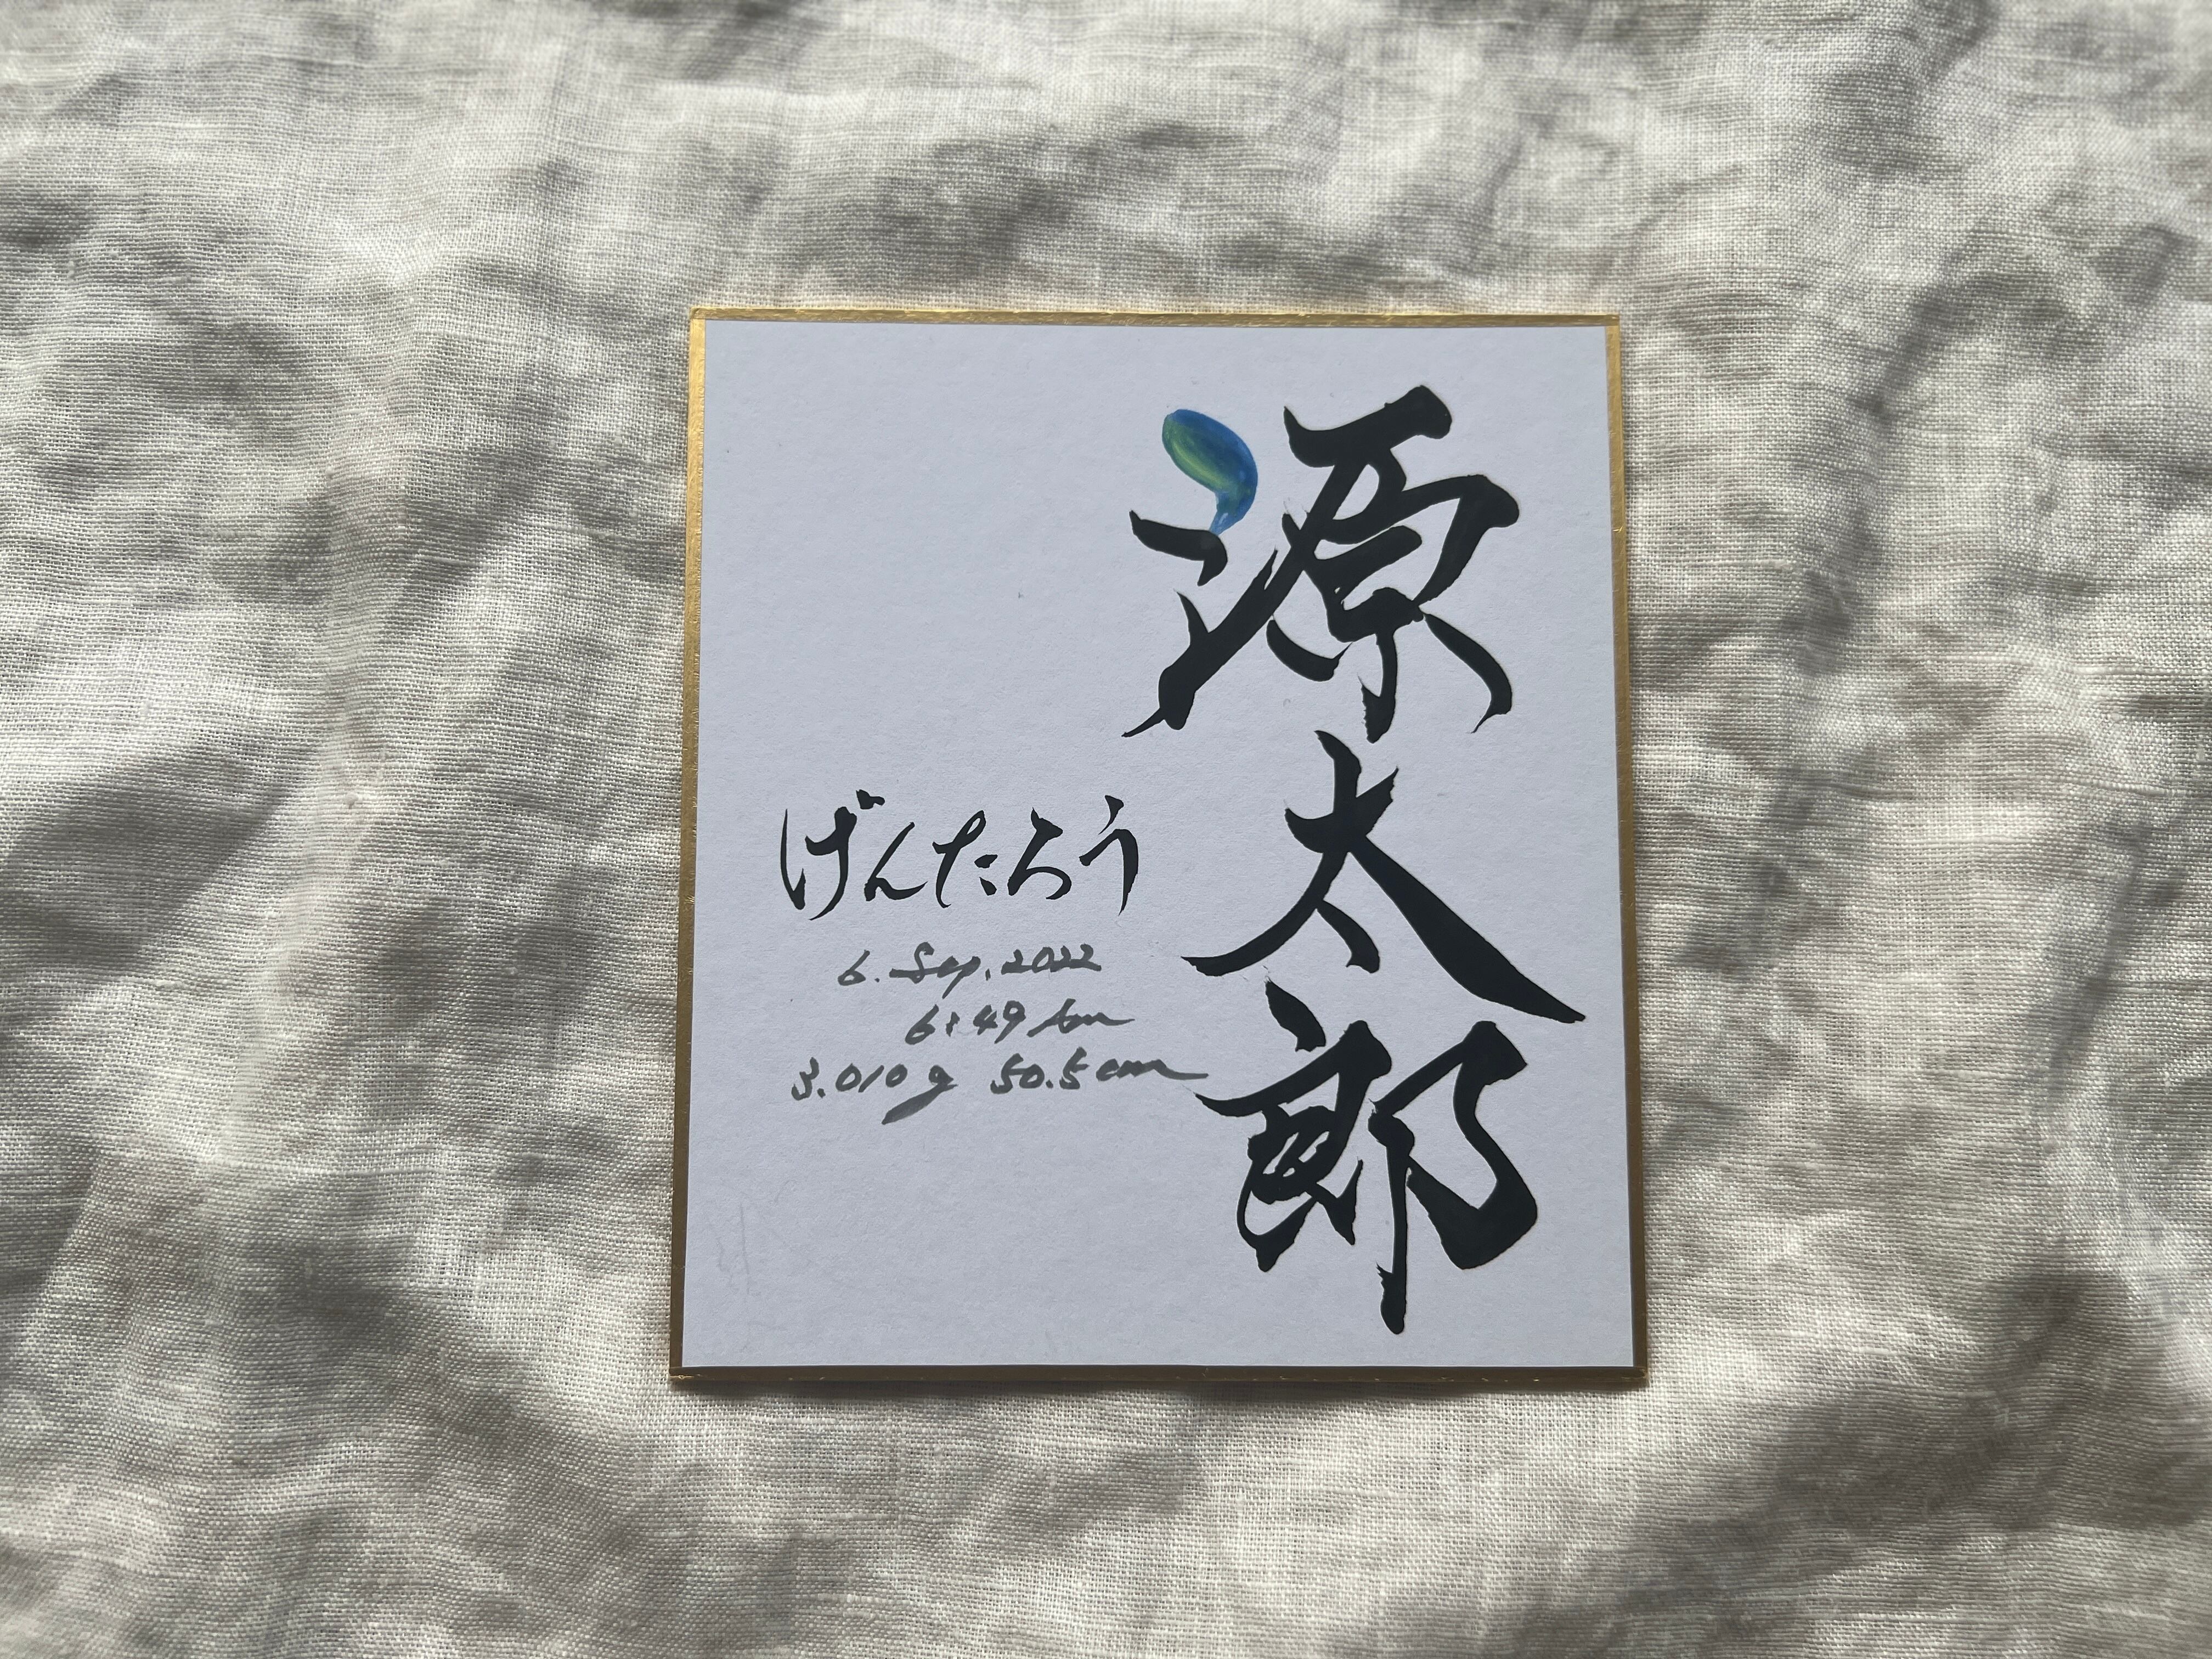 源太郎
げんたろう
6. Sep. 2022
6:49 Am
3.010g 50.5cm